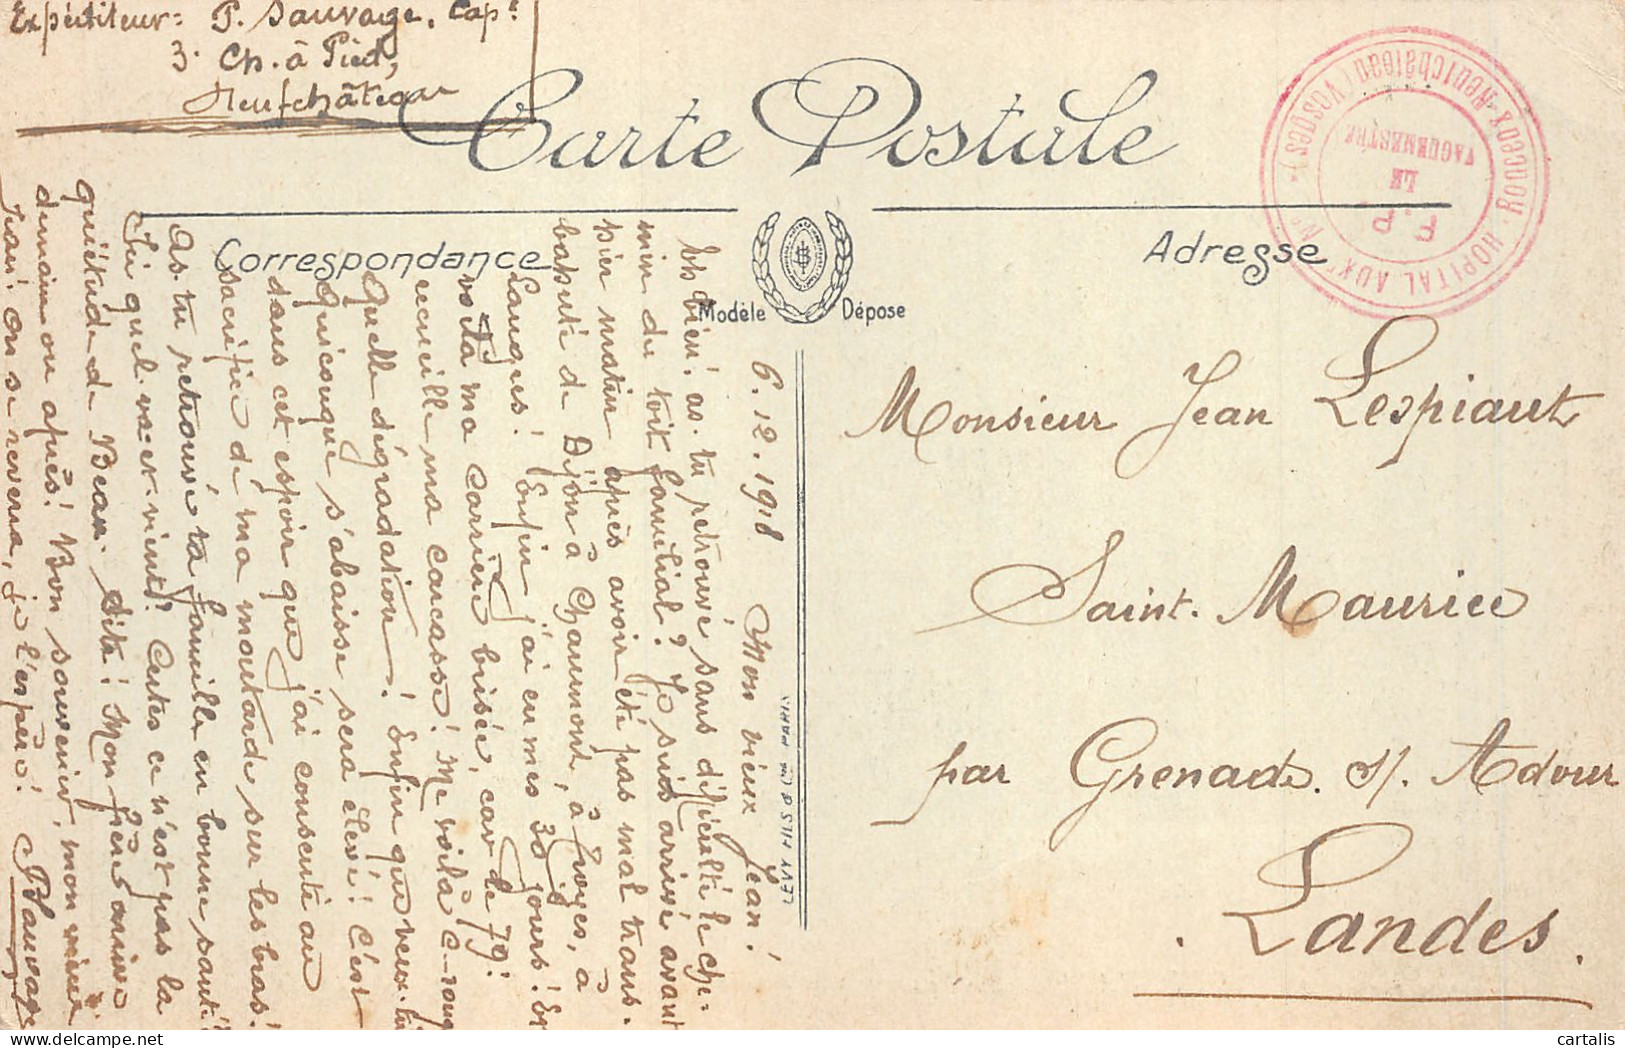 Expéditeur: P. Sauvage, Cap.
3. Ch. à Pied,
Neufchâteau
Carte Postale
Correspondance
Adresse
Modèle Déposé
LEVY FILS & Cie PARIS
HOPITAL AUXre Nº
Bonnecourt-Neufchâteau (Vosges)
F. P.
LE
VAGUEMESTRE
Monsieur Jean Lespiaut
Saint-Maurice
par Grenade s/ Adour
Landes.
6.12.1918 Mon vieux Jean!
Eh bien! as-tu retrouvé sans difficulté le che-
min du toit familial? Je suis arrivé avant
hier matin après avoir été pas mal trans-
bahuté de Dijon à Chaumont, à Troyes, à
Langres! Enfin j'ai eu mes 30 jours! Et
voilà ma carrière brisée, car le 79e
recueille ma carcasse! Me voilà
Quelle dégradation! Enfin que veux-tu
Quiconque s'abaisse sera élevé! C'est
dans cet espoir que j'ai consenti au
sacrifice de ma moutarde sur les bras!
As-tu retrouvé ta famille en bonne santé
Lui quel va-et-vient! Certes ce n'est pas la
quiétude de Dax. dita! Mon frère arrive
demain ou après! Bon souvenir, mon vieux
Jean! on se reverra, je l'espère! PSauvage